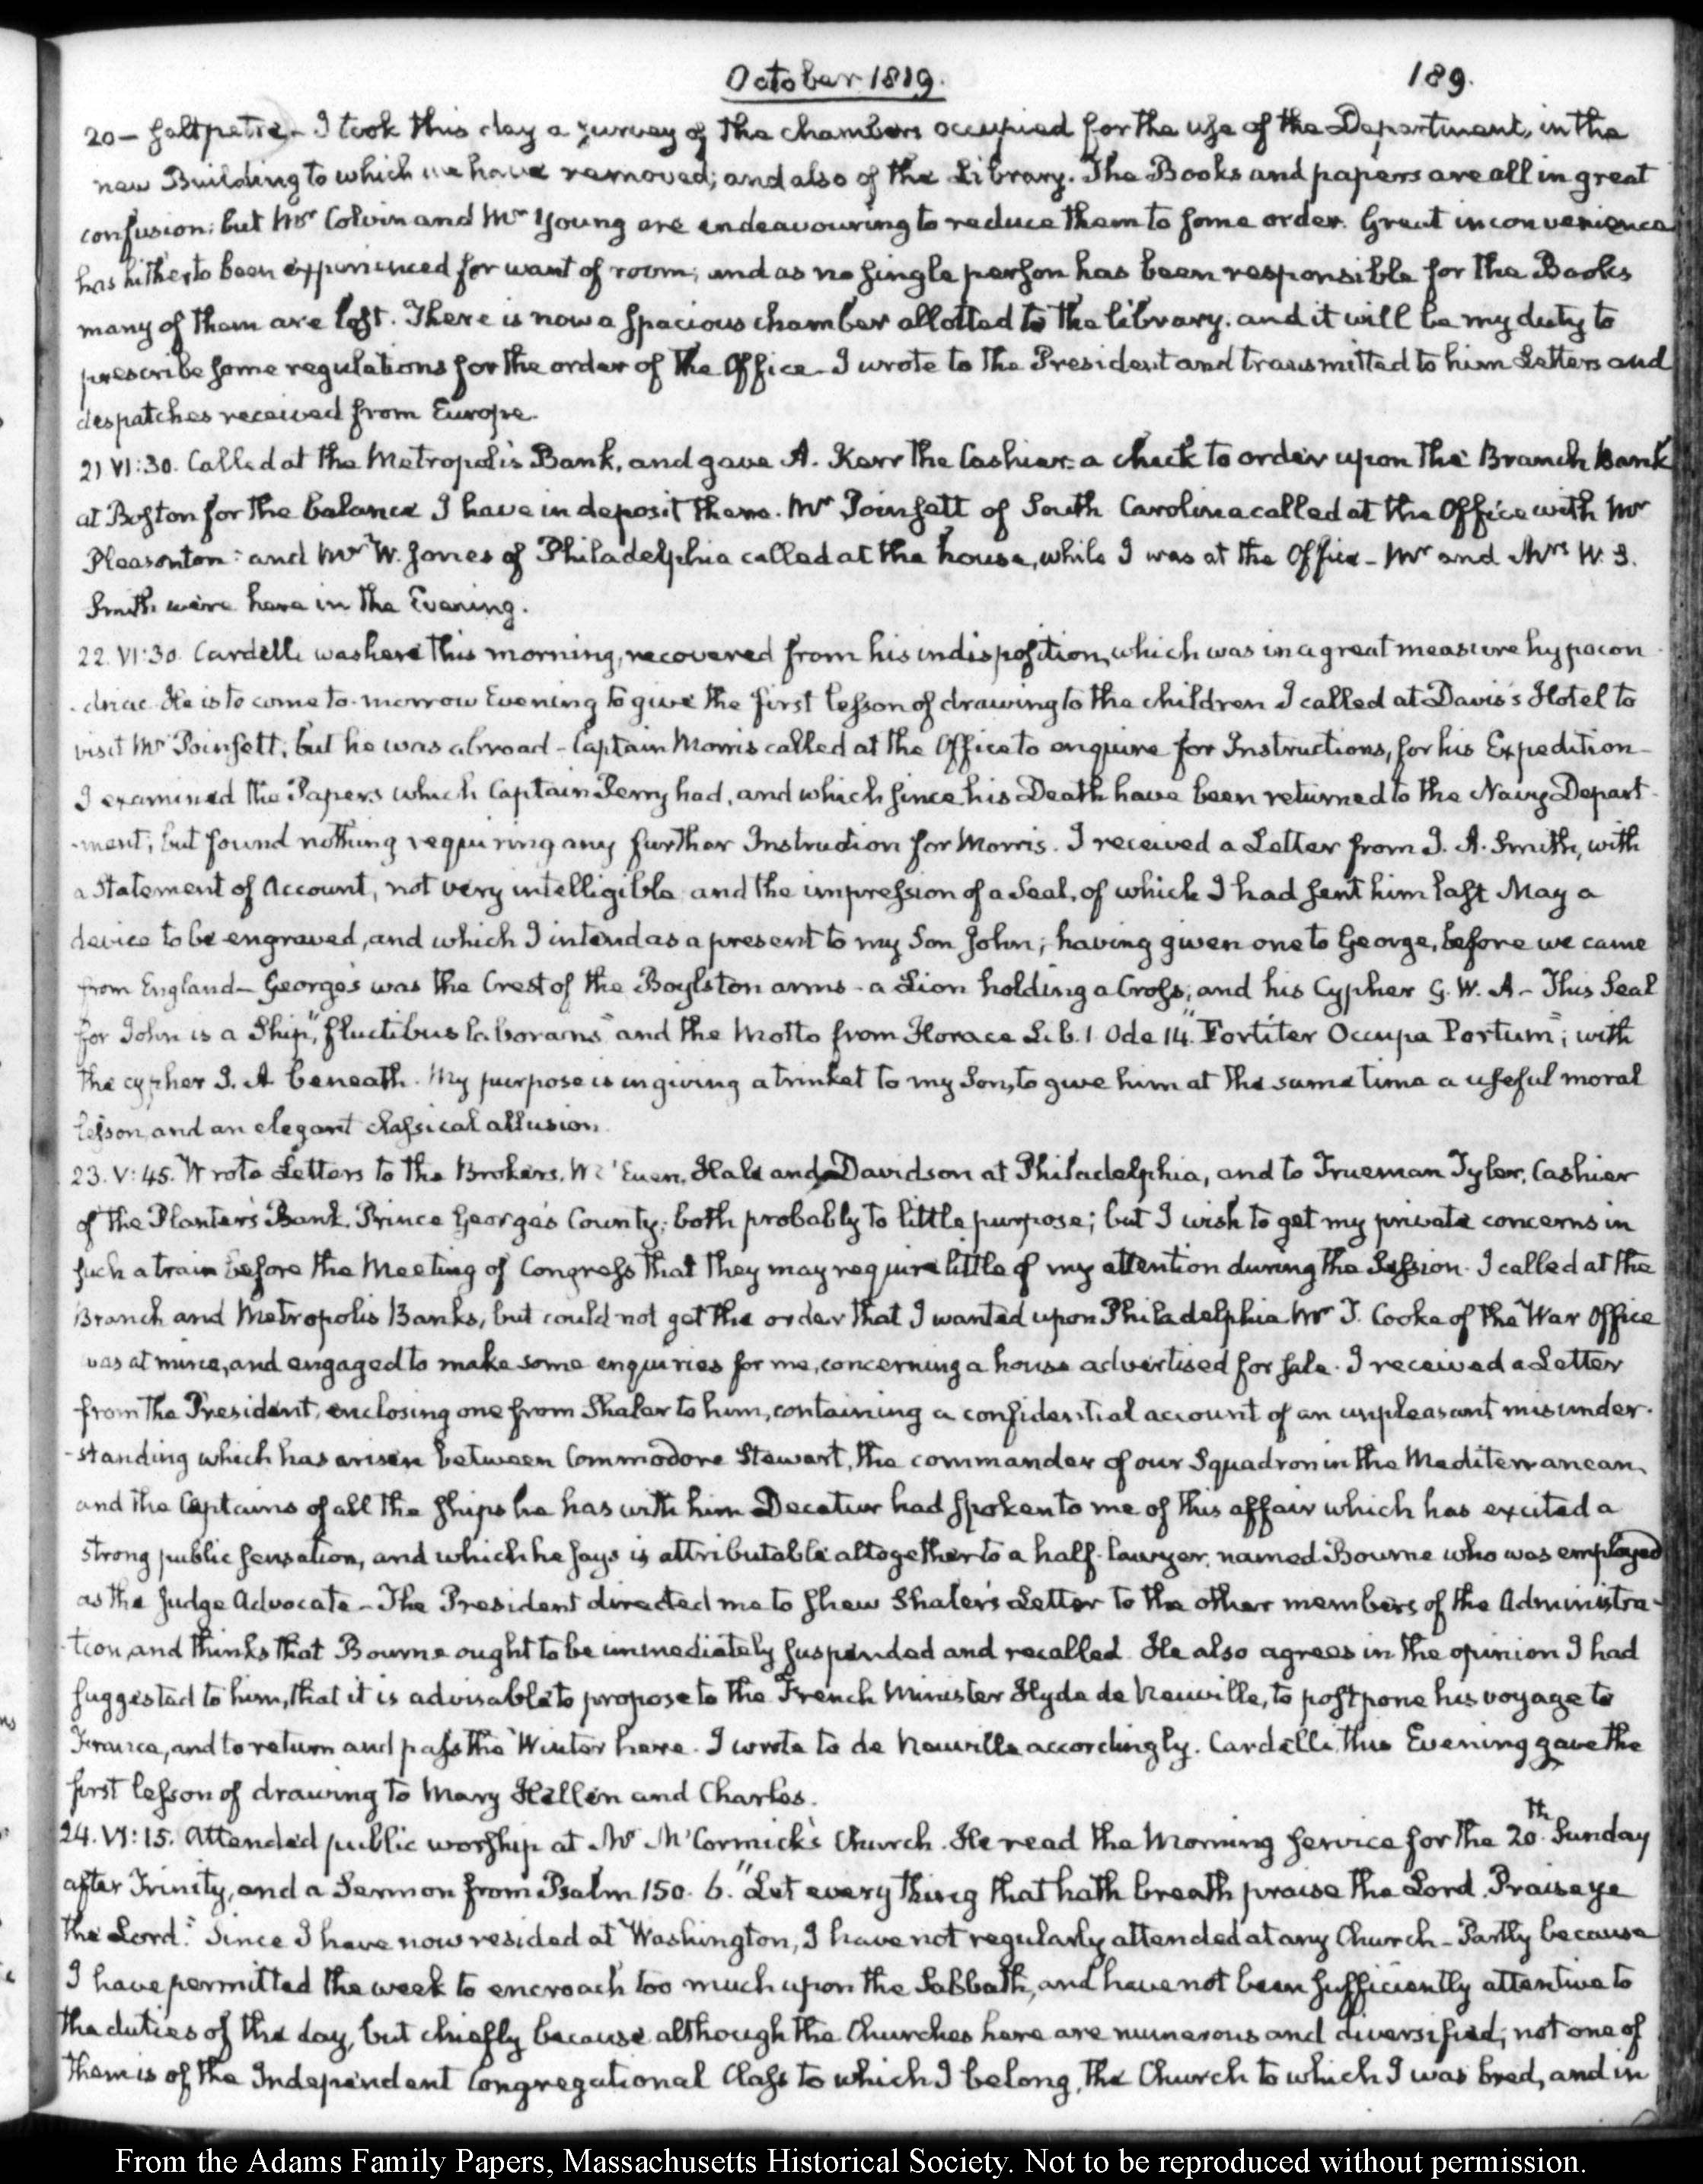 October 1819.
189.
20 — Saltpetre - I took this day a survey of the chambers occupied for the use of the Department, in the
new Building to which we have removed; and also of the Library. The Books and papers are all in great
confusion; but Mr Colvin and Mr Young are endeavouring to reduce them to some order. Great inconvenience
has hitherto been experienced for want of room; and as no single person has been responsible for the Books
many of them are lost. There is now a spacious chamber allotted to the library. and it will be my duty to
prescribe some regulations for the order of the Office - I wrote to the President and transmitted to him Letters and
despatches received from Europe.
21 VI:30. Called at the Metropolis Bank, and gave A. Kerr the Cashier a check to order upon the Branch Bank
at Boston for the balance I have in deposit there. Mr Poinsett of South Carolina called at the Office with Mr
Pleasonton: and Mr W. Jones of Philadelphia called at the house, while I was at the Office - Mr and Mrs W. S.
Smith were here in the Evening.
22. VI:30. Cardelli was here this morning, recovered from his indisposition, which was in a great measure hypocon
-driac. He is to come to-morrow Evening to give the first lesson of drawing to the children I called at Davis's Hotel to
visit Mr Poinsett, but he was abroad - Captain Morris called at the Office to enquire for Instructions, for his Expedition -
I examined the Papers which Captain Perry had, and which since his Death have been returned to the Navy Depart-
-ment; but found nothing requiring any further Instruction for Morris. I received a Letter from J. A. Smith, with
a Statement of Account, not very intelligible and the impression of a Seal, of which I had sent him last May a
device to be engraved, and which I intend as a present to my Son John; having given one to George, before we came
from England - George's was the Crest of the Boylston arms - a Lion holding a Cross; and his Cypher G. W. A - This Seal
for John is a Ship, "fluctibus laborans" and the Motto from Horace Lib. 1 Ode 14. "Fortiter Occupa Portum"; with
the cypher J. A beneath. My purpose is in giving a trinket to my Son, to give him at the same time a useful moral
lesson, and an elegant classical allusion.
23. V:45. Wrote Letters to the Brokers, Mc'Euen, Hale and Davidson at Philadelphia, and to Trueman Tyler, Cashier
of the Planter's Bank, Prince George's County; both probably to little purpose; but I wish to get my private concerns in
such a train before the Meeting of Congress that they may require little of my attention during the Session. I called at the
Branch and Metropolis Banks, but could not get the order that I wanted upon Philadelphia Mr J. Cooke of the War Office
was at mine, and engaged to make some enquiries for me, concerning a house advertised for sale. I received a Letter
from the President, enclosing one from Shaler to him, containing a confidential account of an unpleasant misunder-
-standing which has arisen between Commodore Stewart, the commander of our Squadron in the Mediterranean,
and the Captains of all the ships he has with him Decatur had spoken to me of this affair which has excited a
strong public sensation, and which he says is attributable altogether to a half-lawyer, named Bourne who was employed
as the Judge Advocate - The President directed me to shew Shaler's Letter to the other members of the Administra-
-tion, and thinks that Bourne ought to be immediately suspended and recalled. He also agrees in the opinion I had
suggested to him, that it is advisable to propose to the French Minister Hyde de Neuville, to postpone his voyage to
France, and to return and pass the Winter here. I wrote to de Neuville accordingly. Cardelli this Evening gave the
first lesson of drawing to Mary Hellen and Charles.
24. VI:15. Attended public worship at Mr M'Cormick's Church. He read the Morning Service for the 20th Sunday
after Trinity, and a Sermon from Psalm 150. 6. "Let every thing that hath breath praise the Lord. Praise ye
the Lord." Since I have now resided at Washington, I have not regularly attended at any Church - Partly because
I have permitted the week to encroach too much upon the Sabbath, and have not been sufficiently attentive to
the duties of the day, but chiefly because although the Churches here are numerous and diversified, not one of
them is of the Independent Congregational Class to which I belong, the Church to which I was bred, and in
From the Adams Family Papers, Massachusetts Historical Society. Not to be reproduced without permission.